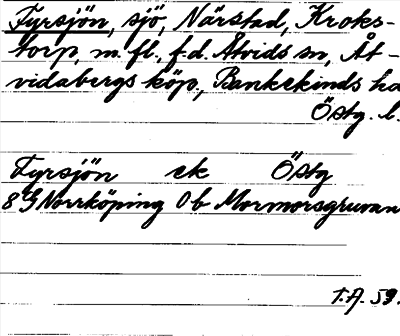 Fyrsjön, sjö, Närstad, Kroks-
torp, m.fl., f.d. Åtvids sn, Åt-
vidabergs köp., Bankekinds hd
Östg. l.
Fyrsjön ek Östg
8G Norrköping 0b Mormorsgruvan
T.A. 59.